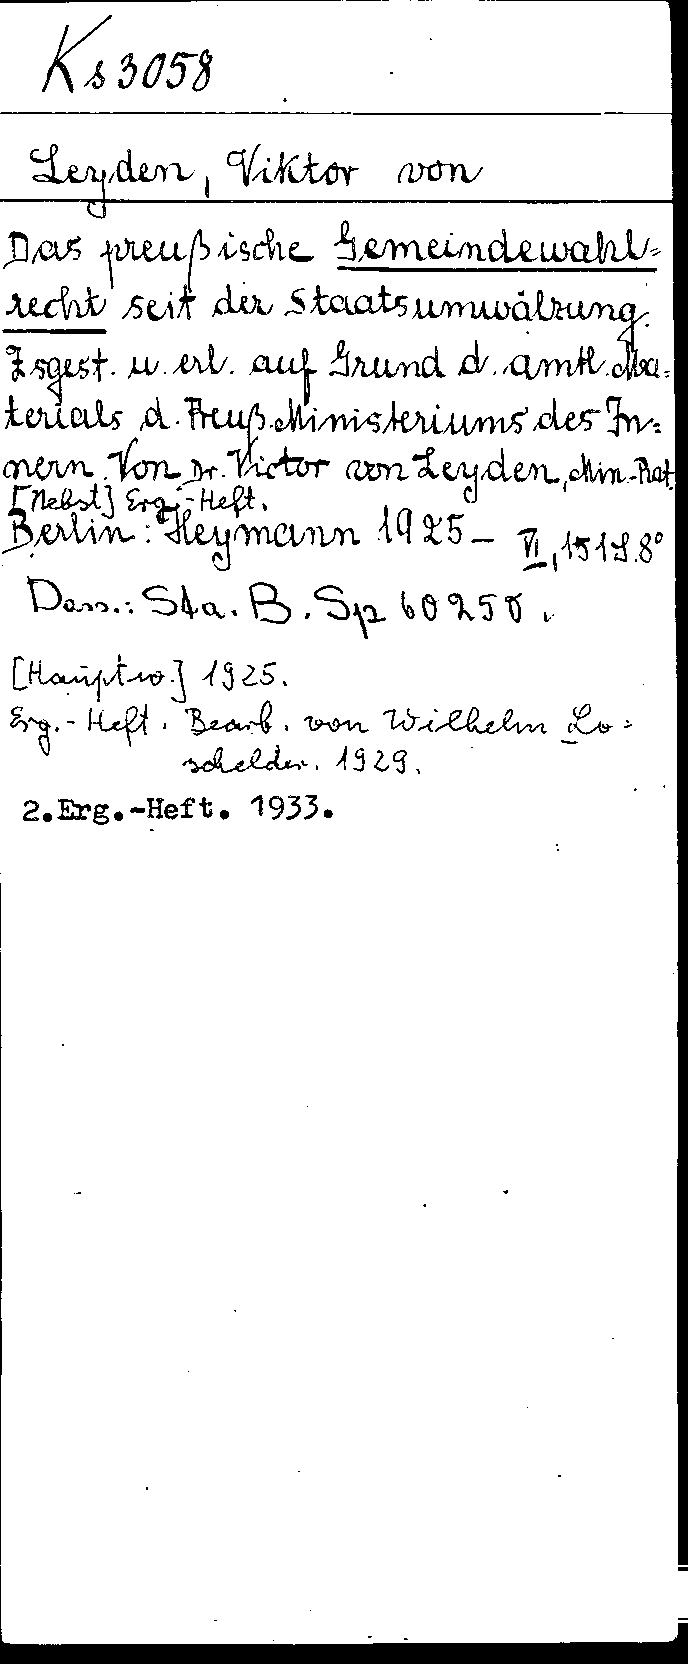 Ks 3058
Leyden, Viktor von
Das preußische Gemeindewahl=
recht seit der Staatsumwälzung.
Zsgest. u. erl. auf Grund d. amtl. Ma=
terials d. Preuß. Ministeriums des In=
nern. Von Dr. Victor von Leyden, Min.-Rat.
[Nebst] Erg.-Heft.
Berlin: Heymann 1925- VI, 151 S. 8°
Dass.: Sta. B. Sp 60250.
[Hauptw.] 1925.
Erg.-Heft. Bearb. von Wilhelm Lo=
schelder. 1929.
2.Erg.-Heft. 1933.